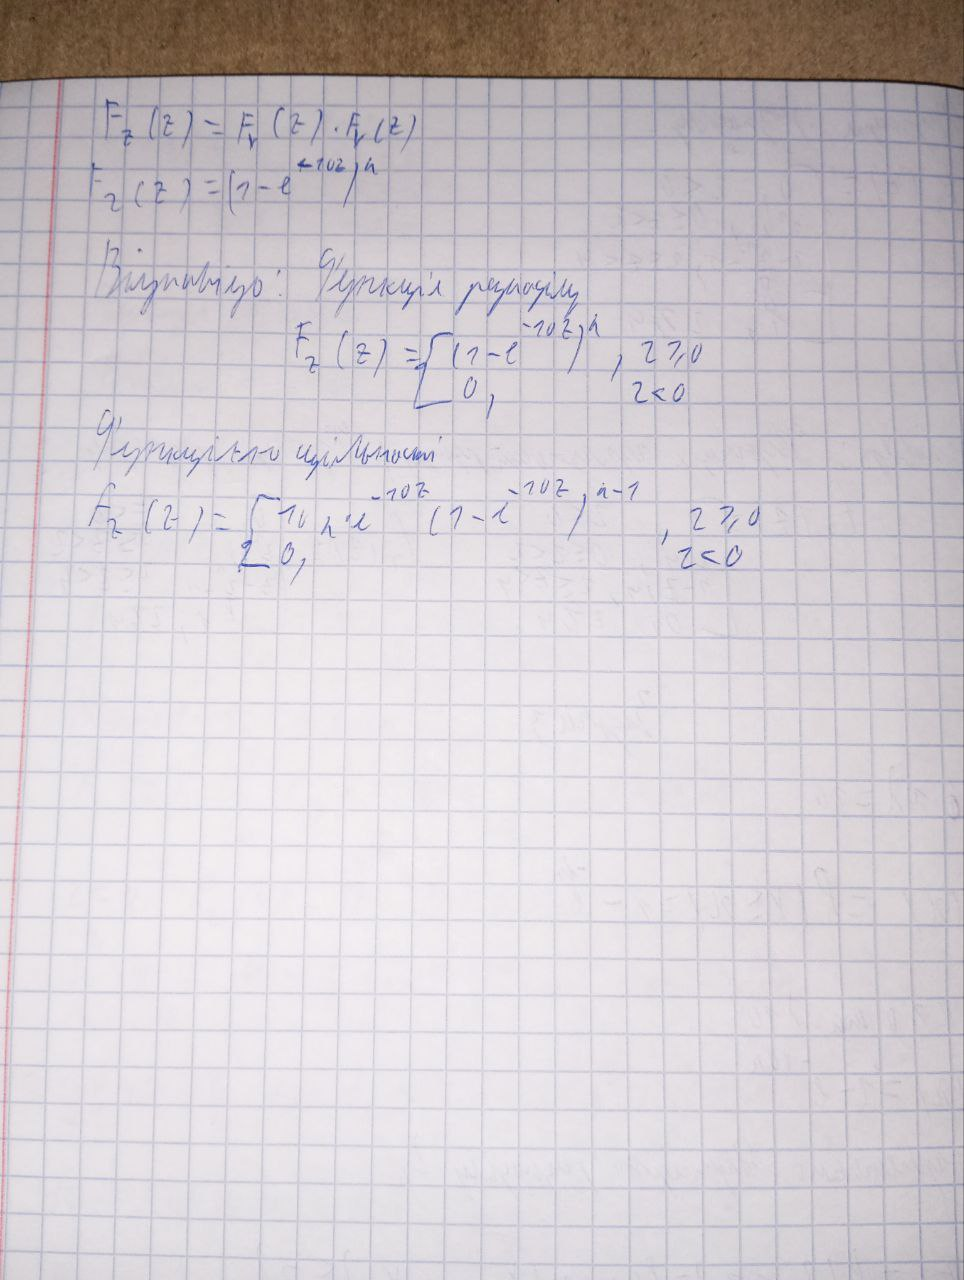 F_z (z) = F_v (z) · F_v (z)
F_z (z) = (1 - e^{-10z})^n
Відповідь: Функція розподілу
F_z (z) = [ (1 - e^{-10z})^n , z ≥ 0
0, z < 0
щільності
F_z (z) = [ 10 n · e^{-10z} (1 - e^{-10z})^{n-1} , z ≥ 0
0, z < 0